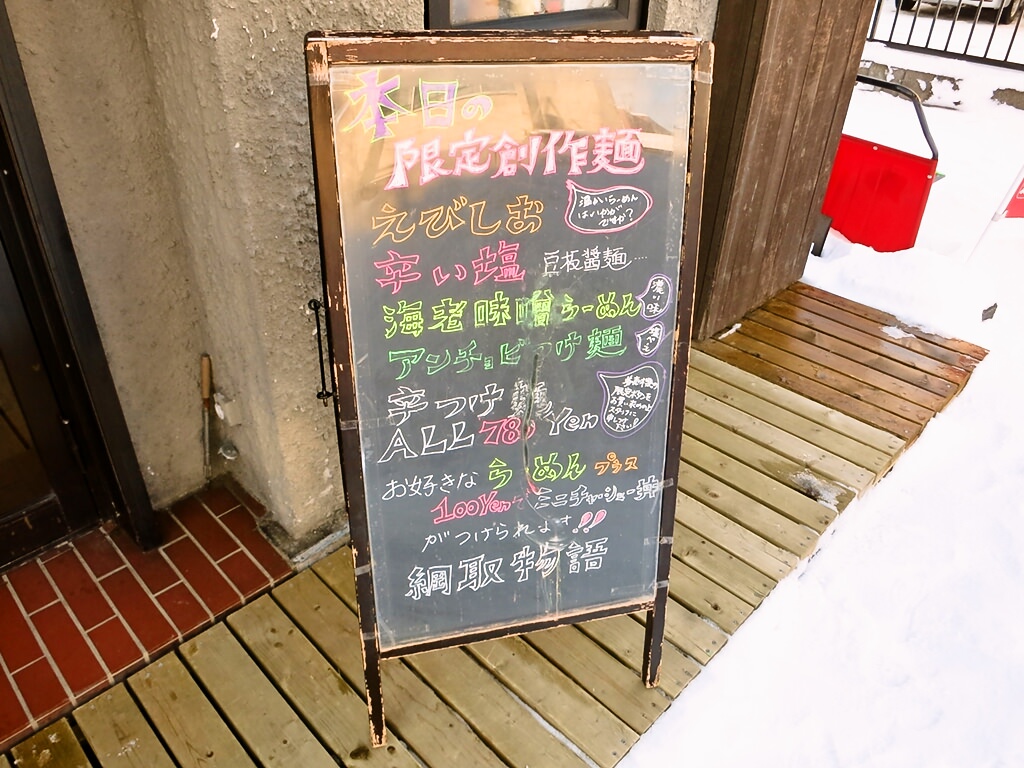 本日の
限定創作麺
えびしお
温かいらーめん
はいかが
ですか?
辛い塩 豆板醤麺…
海老味噌らーめん
濃い味
アンチョビつけ麺
辛つけ麺
ALL 780 Yen
限定ボタンを
お買い求めの上
スタッフに
お好きな らーめん プラス
100Yenで ミニチャーシュー丼
がつけられます!!
網取物語